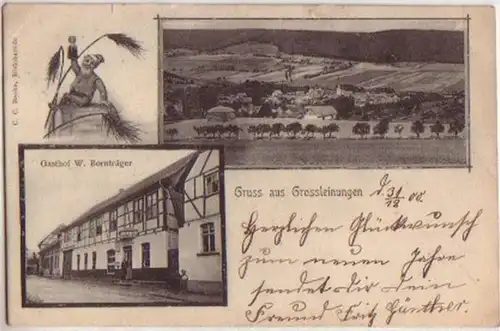 C. C. Benke, Rödlinhausen
Gasthof W. Bornträger
Gruss aus Grossleinungen
d. 31/12 00.
Herzlichen Glückwunsch
zum neuen Jahre
sendet dir dein
Freund Fritz Günther.